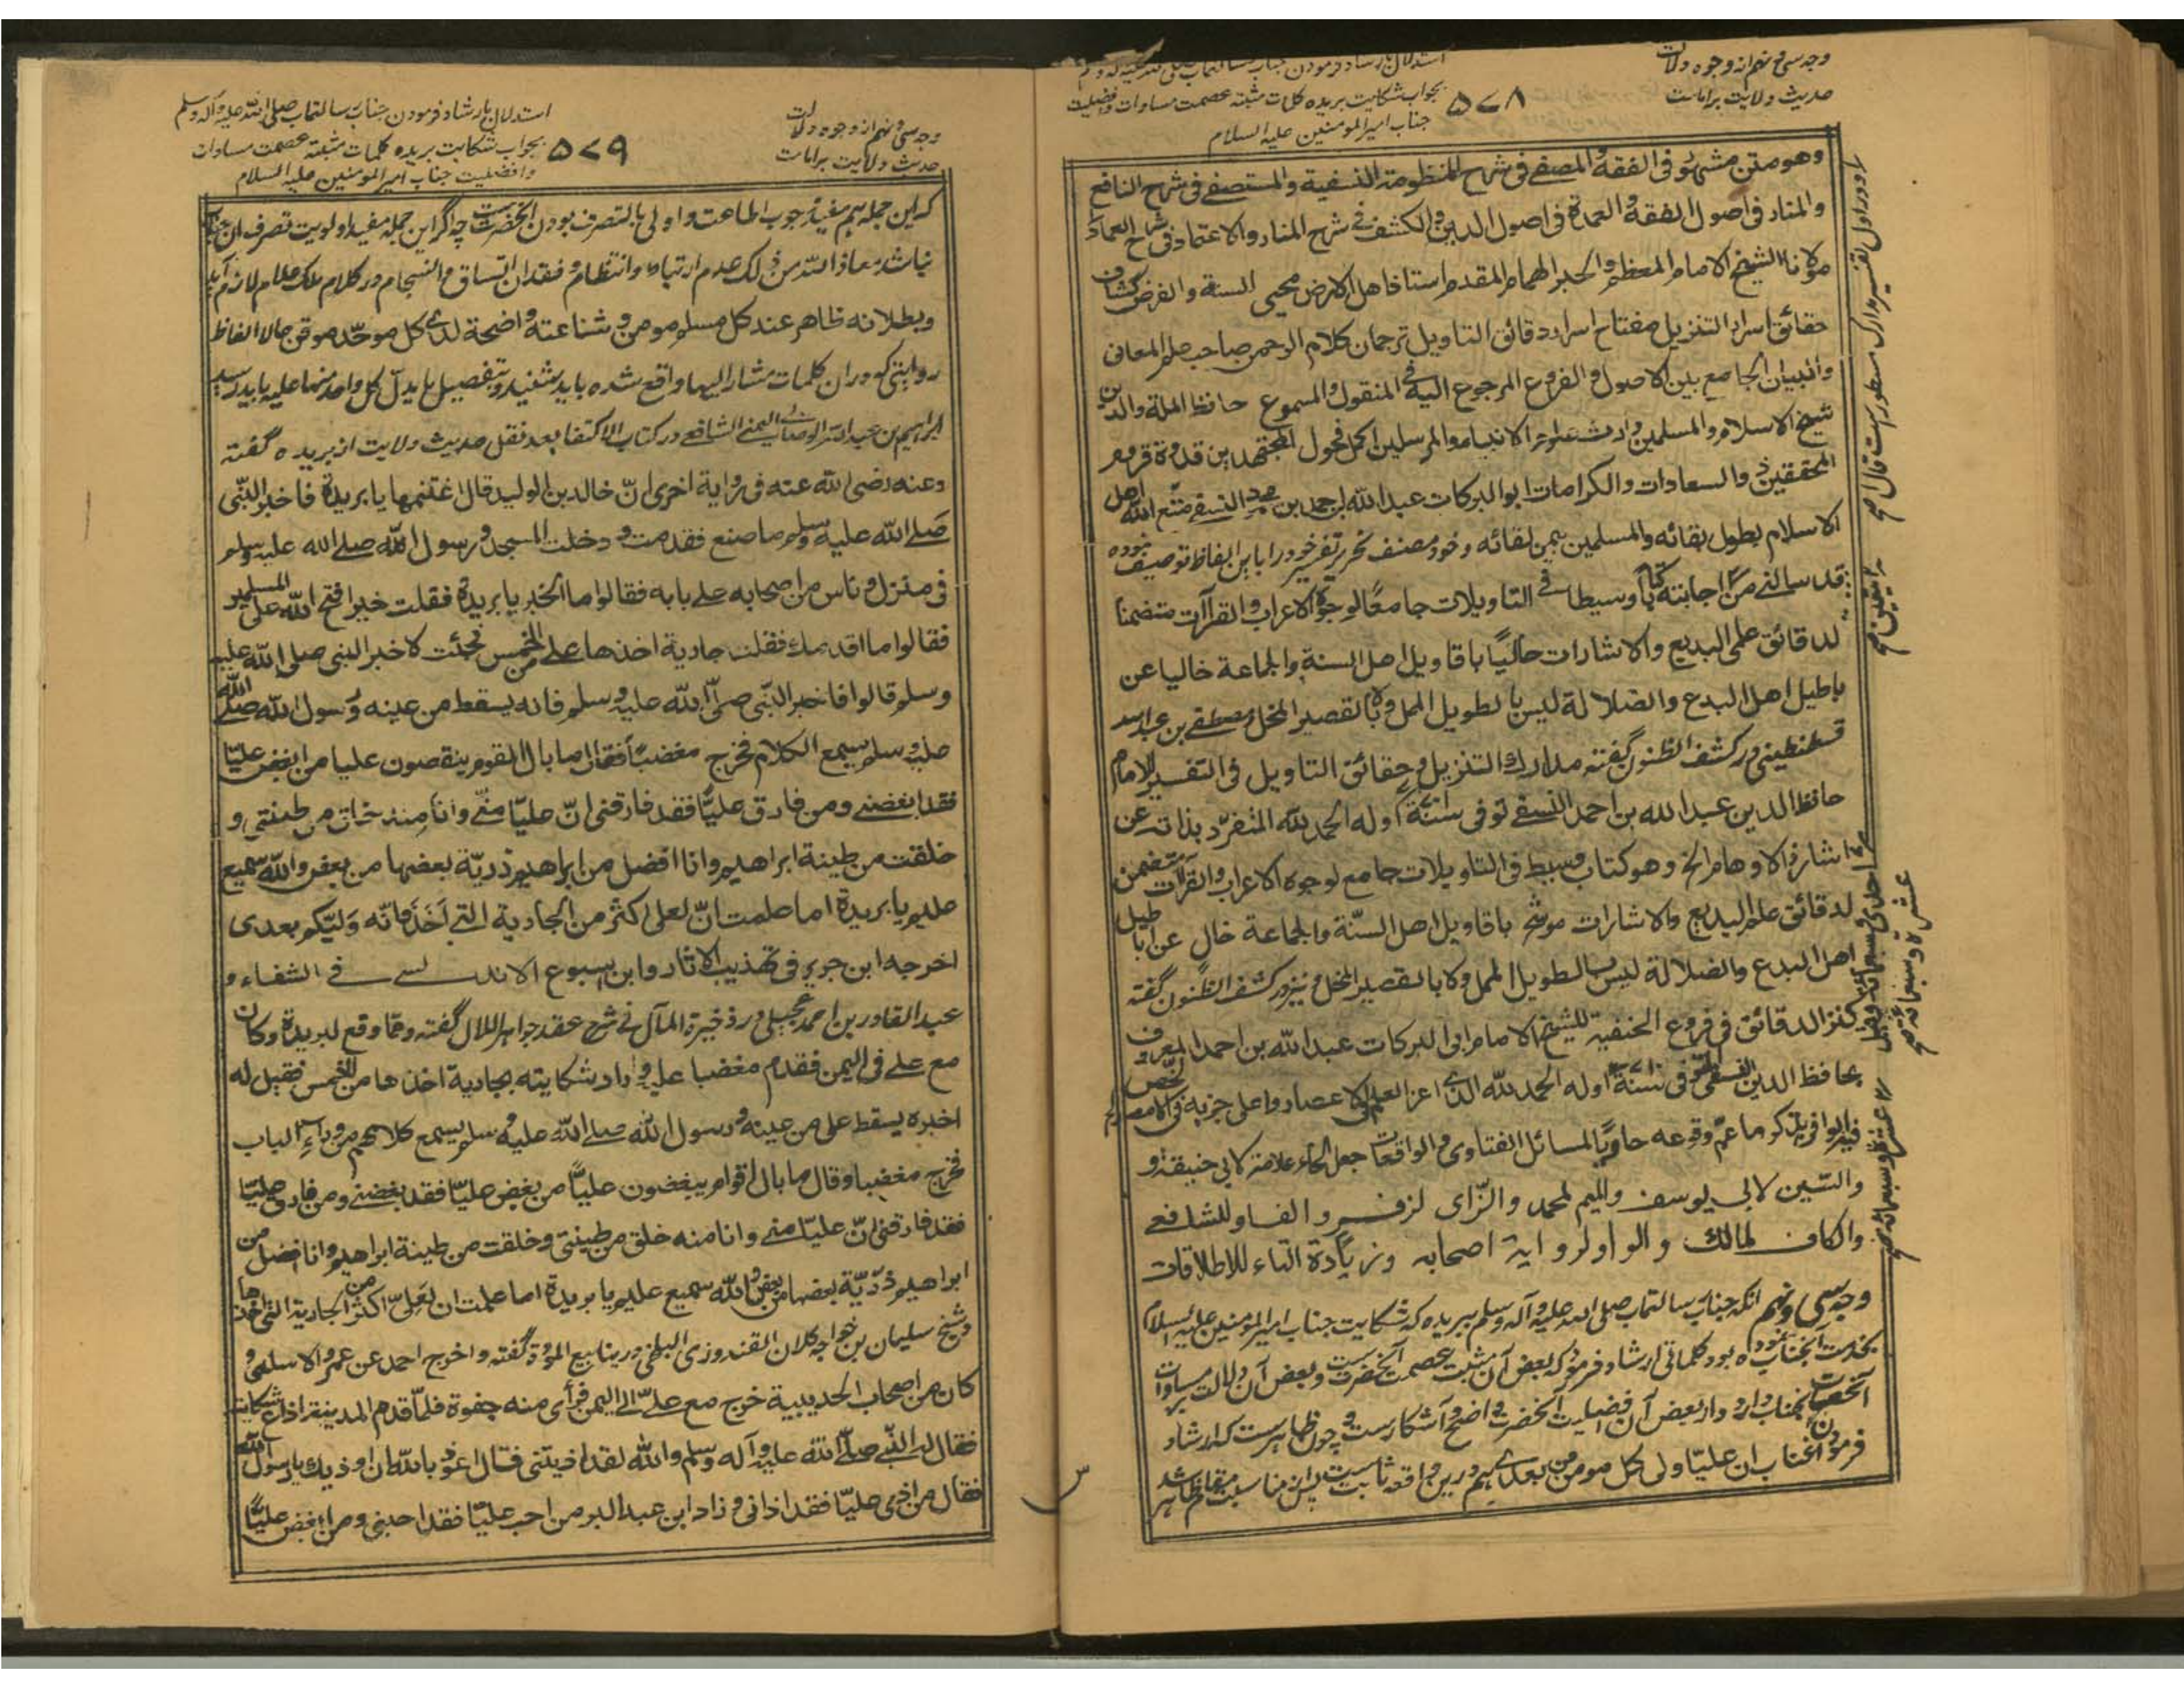 وجه سی و نهم از وجوه دلالت
حدیث ولایت بر امامت
۵۷۸
استدلال بارشاد فرمودن جناب رسالتمآب صلی الله علیه و آله و سلم
بجواب شکایت بریده کلمات مثبته عصمت مساوات و افضلیت
جناب امیر المومنین علیه السلام
وهو متن مشهور فی الفقه والمصفے فی شرح المنظومة النسفیة والمستصفے فی شرح النافع
والمنار فی اصول الفقه والعمدة فی اصول الدین والکشف فے شرح المنار والاعتماد فی شرح العمدة
مولانا الشیخ الامام المعظم والحبر الهمام المقدم استاذ اهل الارض محیی السنة والفرض کشاف
حقائق اسرار التنزیل مفتاح اسرار دقائق التاویل ترجمان کلام الرحمن صاحب علم المعانی
والبیان الجامع بین الاصول والفروع المرجوع الیه فی المنقول والمسموع حافظ الملة والدین
شیخ الاسلام والمسلمین وارث علوم الانبیاء والمرسلین اکمل فحول المجتهدین قدوة قروم
المحققین ذو السعادات والکرامات ابو البرکات عبد الله بن احمد بن محمود النسفے متع الله اهل
الاسلام بطول بقائه والمسلمین بیمن لقائه وخود مصنف نحریر تفسیر خود را باین الفاظ توصیف نموده
قد سالنے من اجابته کتابا وسیطا فے التاویلات جامعًا لوجوه الاعراب والقراآت متضمنا
لدقائق علمی البدیع والاشارات حالیًا باقاویل اهل السنة والجماعة خالیا عن
باطیل اهل البدع والضلالة لیس بالطویل الممل ولا بالقصیر المخل ومصطفے بن عبد الله
قسطنطینی در کشف الظنون گفته مدارك التنزیل وحقائق التاویل فی التفسیر للامام
حافظ الدین عبد الله بن احمد النسفے توفی سنة اوله الحمد لله المتفرد بذاته عن
اشارة الاوهام الخ وهو کتاب وسیط فی التاویلات جامع لوجوه الاعراب والقراآت متضمن
لدقائق علم البدیع والاشارات موشح باقاویل اهل السنّة والجماعة خالٍ عن اباطیل
اهل البدع والضلالة لیس بالطویل الممل ولا بالقصیر المخل ونیز در کشف الظنون گفته
کنز الدقائق فی فروع الحنفیة للشیخ الامام ابی البرکات عبد الله بن احمد المعروف
بحافظ الدین النسفی المتوفی سنة اوله الحمد لله الذی اعز العلم فی الاعصار واعلی حزبه فی الامصار الخ لخص
فیه الوافی بذکر ما عمّ وقوعه حاویًا لمسائل الفتاوی والواقعات جعل الحاء علامة لابی حنیفة و
والسّین لابی یوسف والمیم لمحمد والزّای لزفر والفاء للشافعے
والکاف لمالك والواو لروایة اصحابه وزیادة التاء للاطلاقات
وجه سی و نهم آنکه جناب رسالتمآب صلی الله علیه وآله وسلم ببریده که شکایت جناب امیر المومنین علیه السلام
بخدمت آنجناب نموده بود کلماتی ارشاد فرموده که بعض آن مثبت عصمت آنحضرت ست وبعض آن دلالت بر مساوات
آنحضرت بآنجناب دارد و از بعض آن افضلیت آنحضرت واضح و آشکار ست و چون ظاهر ست که ارشاد
فرمودن آنجناب ان علیّا ولی کل مومن من بعدی هم درین واقعه ثابت ست پس از مناسبت مقام ظاهر شد
وجه سی و نهم از وجوه دلالت
حدیث ولایت بر امامت
۵۷۹
استدلال بارشاد فرمودن جناب رسالتمآب صلی الله علیه وآله وسلم
بجواب شکایت بریده کلمات مثبته عصمت مساوات
وافضلیت جناب امیر المومنین علیه السلام
که این جمله هم مفید وجوب اطاعت و اولی بالتصرف بودن آنحضرت ست چه اگر این جمله مفید اولویت تصرف آن جناب
نباشد معاذ الله من ذلك عدم ارتباط وانتظام و فقدان اتساق و انسجام در کلام ملک علام لازم آید
وبطلانه ظاهر عند کل مسلم مومن وشناعته واضحة لدی کل موحّد موقن حالا الفاظ
روایتی که در ان کلمات مشار الیها واقع شده باید شنید و بتفصیل ما یدل کل واحد منها علیه باید رسید
ابراهیم بن عبد الله الوصابی الیمنی الشافعے در کتاب الاکتفا بعد نقل حدیث ولایت از بریده گفته
وعنه رضی الله عنه فی روایة اخری انّ خالد بن الولید قال اغتنمها یا بریدة فاخبر النّبی
صلے الله علیه وسلم ما صنع فقدمت ودخلت المسجد ورسول الله صلے الله علیه وسلم
فی منزل وناس من اصحابه علے بابه فقالوا ما الخبر یا بریدة فقلت خیر افتح الله علی المسلمین
فقالوا ما اقدمك فقلت جاریة اخذها علے من الخمس فجئت لاخبر النبی صلی الله علیه
وسلم قالوا فاخبر النّبی صلی الله علیه وسلم فانه یسقط من عینه ورسول الله صلے الله
علیه وسلم یسمع الکلام فخرج مغضبًا فقال ما بال القوم ینتقصون علیا من ابغض علیّا
فقد ابغضنے ومن فارق علیًّا فقد فارقنی انّ علیّا منّے وانا منه خلق من طینتی و
خلقت من طینة ابراهیم وانا افضل من ابراهیم ذریّة بعضها من بعض والله سمیع
علیم یا بریدة اما علمت انّ لعلی اکثر من الجاریة التے اخذ فانّه ولیّکم بعدی
اخرجه ابن جریر فی تهذیب الآثار وابن اسبوع الاندلسی فے الشفاء و
عبد القادر بن احمد عجیلی در ذخیرة المآل فے شرح عقد جواهر اللال گفته ومما وقع لبریدة وکان
مع علے فی الیمن فقدم مغضبا علیه واراد شکایته بجاریة اخذها من الخمس فقیل له
اخبره یسقط علی من عینه ورسول الله صلے الله علیه وسلم یسمع کلامهم من وراء الباب
فخرج مغضبا وقال ما بال اقوام یبغضون علیًّا من بغض علیّا فقد بغضنے ومن فارق علیّا
فقد فارقنی انّ علیّا منے وانا منه خلق من طینتی وخلقت من طینة ابراهیم وانا افضل من
ابراهیم ذرّیّة بعضها من بعض والله سمیع علیم یا بریدة اما علمت ان لعلیّ اکثر من الجاریة التی اخذها
وشیخ سلیمان بن خواجه کلان القندوزی البلخی در ینابیع المودة گفته واخرج احمد عن عمرو الاسلمی و
کان من اصحاب الحدیبیة خرج مع علیّ الے الیمن فرأی منه جفوة فلمّا قدم المدینة اذاع شکایته
فقال له النّبے صلّے الله علیه وآله وسلم والله لقد اذیتنی فقال اعوذ بالله ان اوذیك یا رسول الله
فقال من اذی علیّا فقد اذانی وزاد ابن عبد البر من احب علیّا فقد احبنی ومن ابغض علیًّا